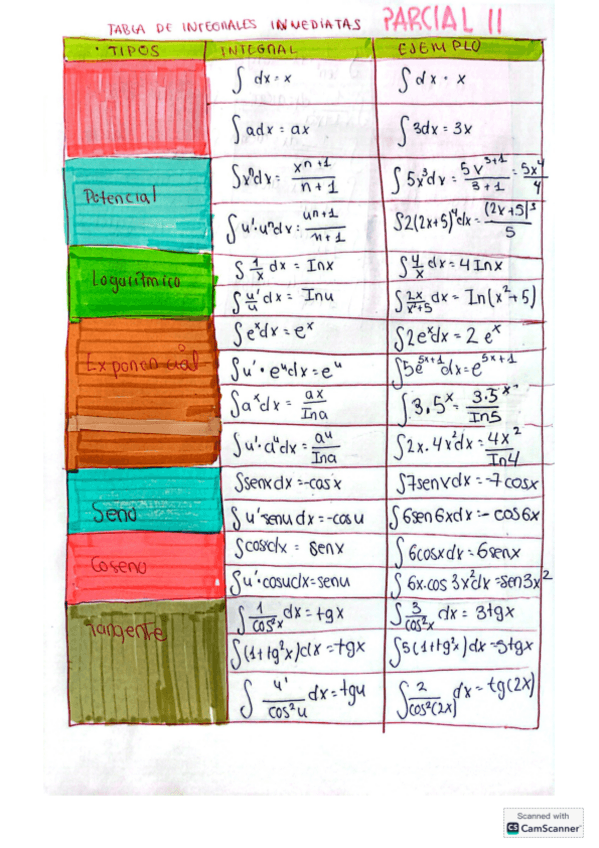 TABLA DE INTEGRALES INMEDIATAS PARCIAL II
· TIPOS INTEGRAL EJEMPLO
∫ dx = x ∫ dx = x
∫ adx = ax ∫ 3dx = 3x
Potencial
∫xⁿdx = xⁿ⁺¹/n+1 ∫5x³dx = 5x³⁺¹/3+1 = 5x⁴/4
∫u'·uⁿdx = un+1/n+1 ∫2(2x+5)⁴dx = (2x+5)⁵/5
Logarítmico
∫1/x dx = Inx ∫4/x dx = 4 Inx
∫u'/u dx = Inu ∫2x/x²+5 dx = In(x²+5)
Exponencial
∫eˣdx = eˣ ∫2eˣdx = 2 eˣ
∫u'·eᵘdx = eᵘ ∫5e⁵ˣ⁺¹dx = e⁵ˣ⁺¹
∫aˣdx = ax/Ina ∫3.5ˣ = 3.5ˣ/In5
∫u'·aᵘdx = au/Ina ∫2x.4x²dx = 4x²/In4
Seno
∫senxdx = -cosx ∫7senxdx = -7cosx
∫u'senu dx = -cosu ∫6sen6xdx = -cos6x
Coseno
∫cosxdx = senx ∫6cosxdx = 6senx
∫u'·cosudx = senu ∫6x.cos3x²dx = sen3x²
Tangente
∫1/cos²x dx = tgx ∫3/cos²x dx = 3tgx
∫(1+tg²x)dx = tgx ∫5(1+tg²x)dx = 5tgx
∫u'/cos²u dx = tgu ∫2/cos²(2x) dx = tg(2x)
Scanned with
CS CamScanner